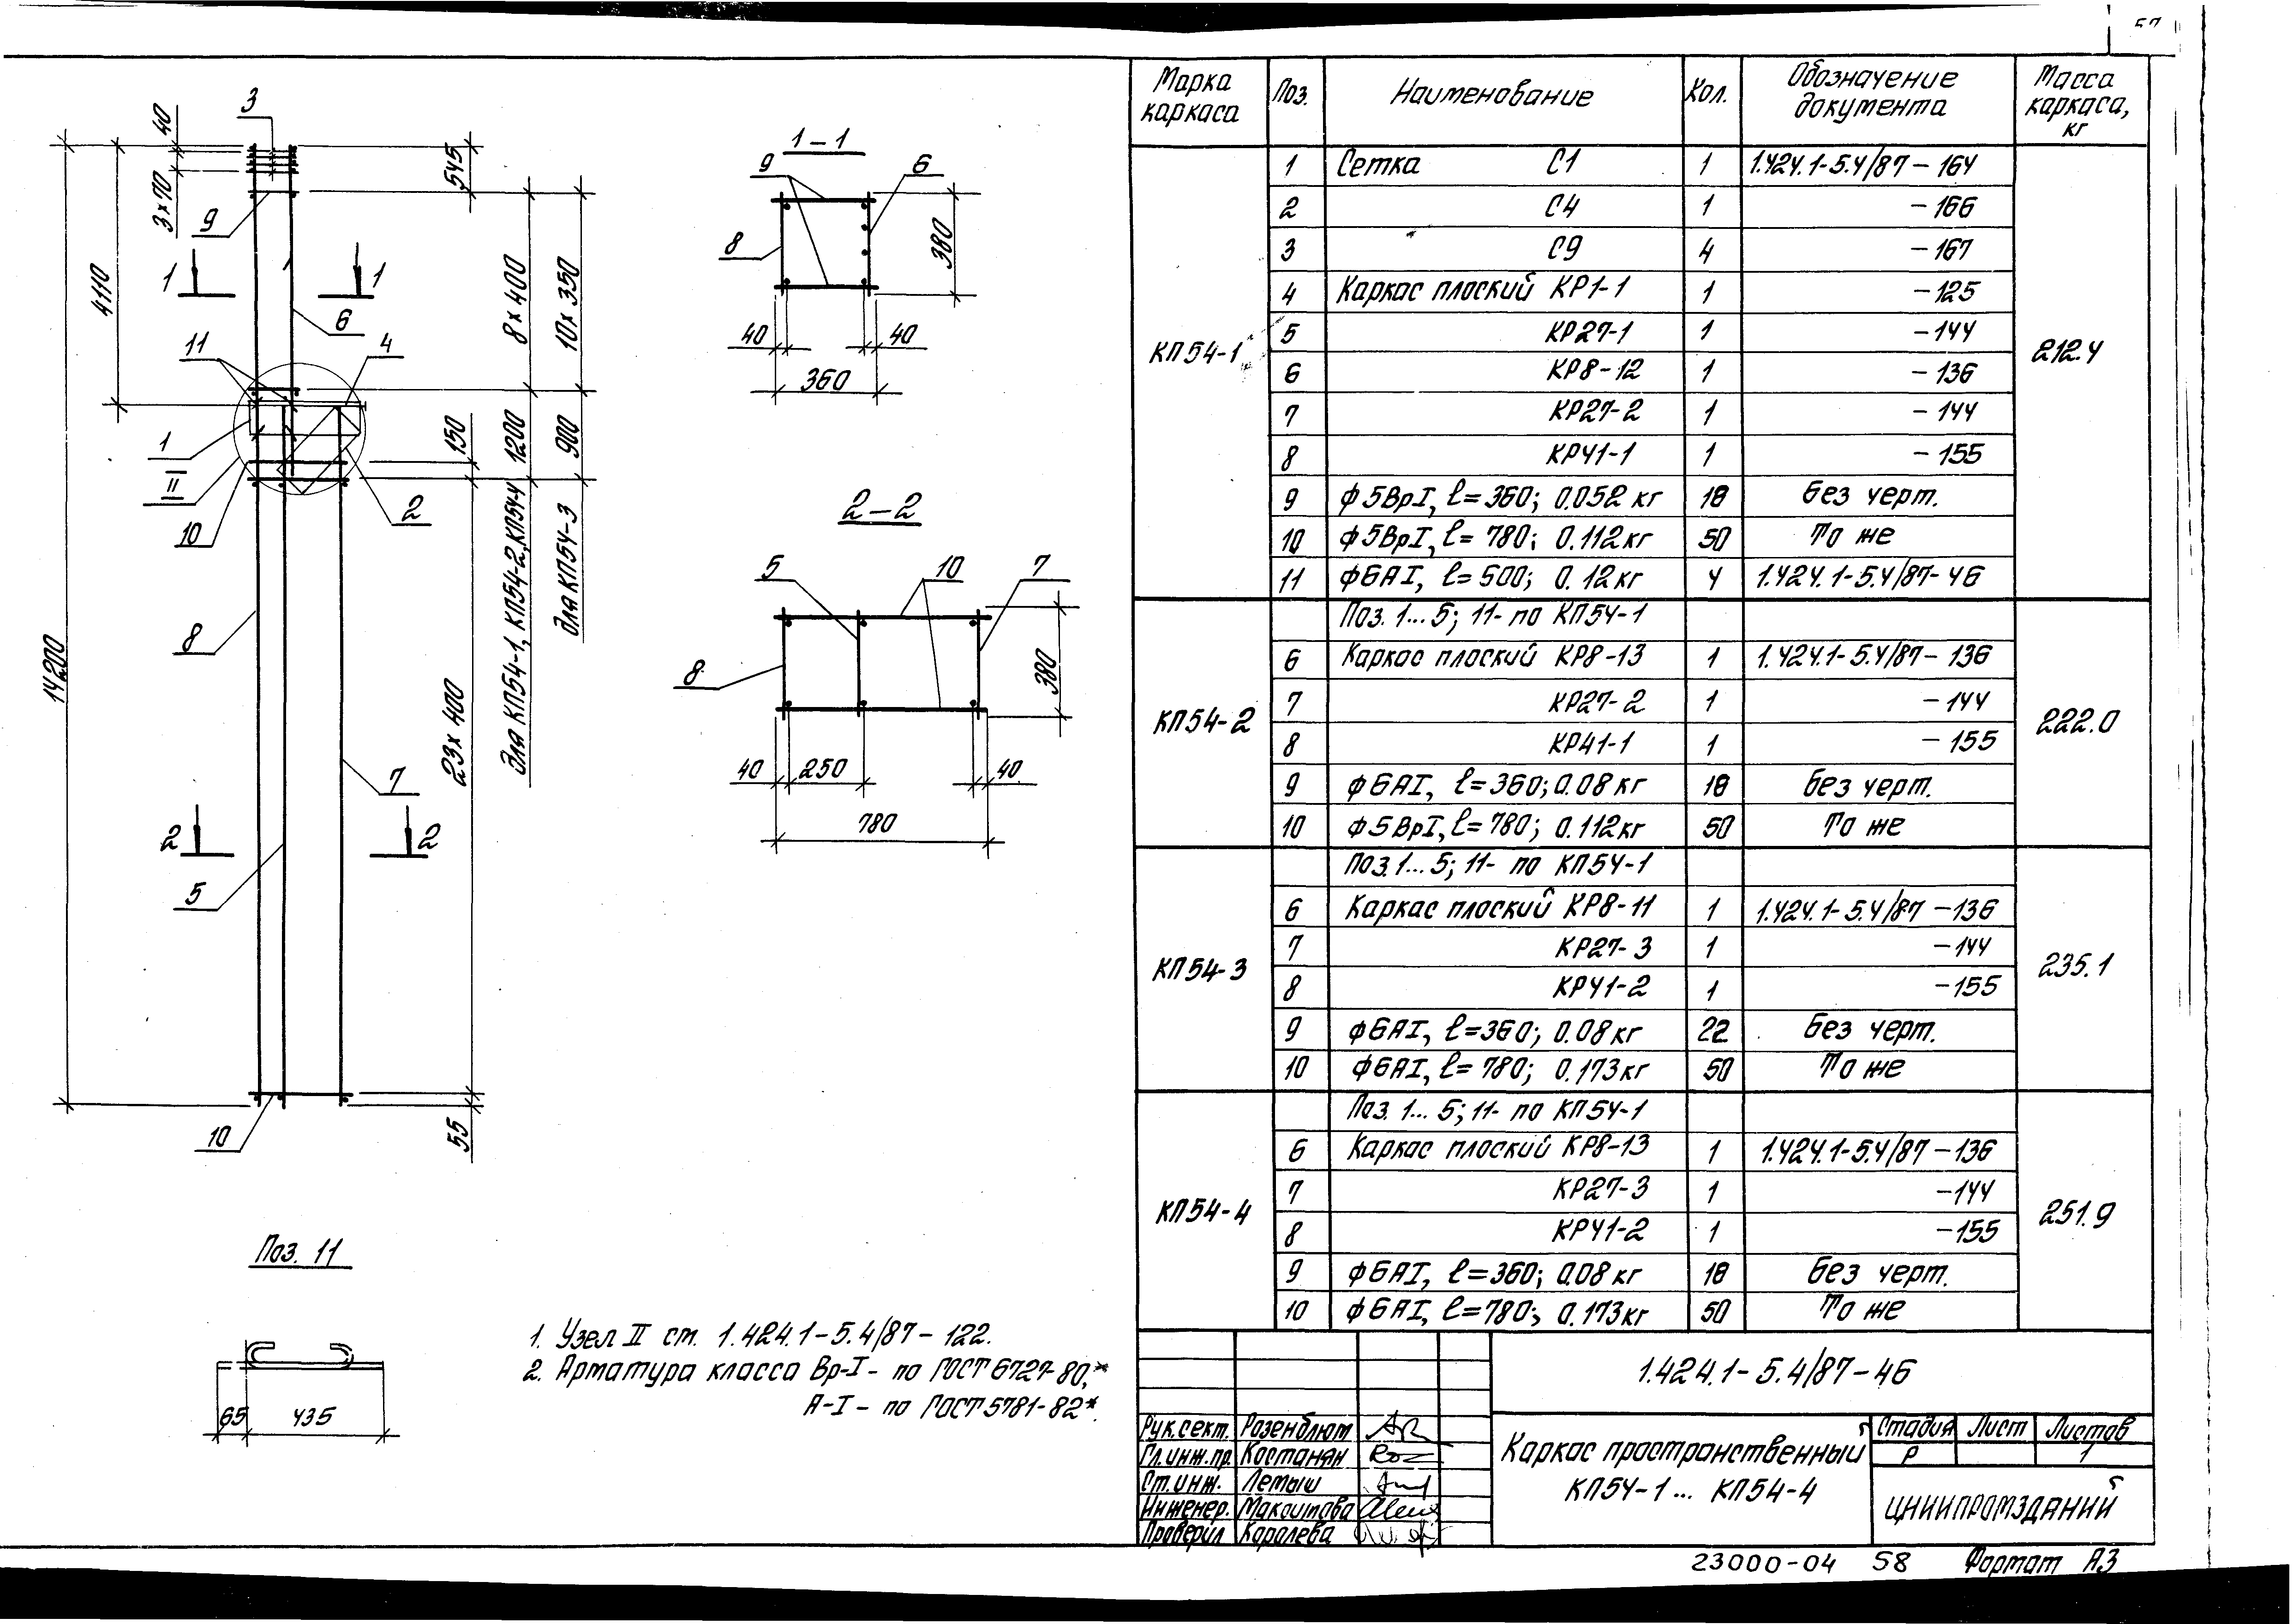 40
3
3×70
9
545
1
1
4110
8×400
10×350
6
11
4
1
II
10
150
1200
900
2
8
14200
23×400
Для КП54-1, КП54-2, КП54-4
Для КП54-3
7
2
2
5
10
55
1-1
9
6
8
380
40
40
360
2-2
5
10
7
8
380
40
250
40
780
Поз. 11
65
435
1. Узел II см. 1.424.1-5.4/87-122.
2. Арматура класса Вр-I - по ГОСТ 6727-80,*
А-I - по ГОСТ 5781-82*.
Марка каркаса Поз. Наименование Кол. Обозначение документа Масса каркаса, кг
КП54-1 212.4
1 Сетка С1 1 1.424.1-5.4/87-164
2 С4 1 -166
3 С9 4 -167
4 Каркас плоский КР1-1 1 -125
5 КР27-1 1 -144
6 КР8-12 1 -136
7 КР27-2 1 -144
8 КР41-1 1 -155
9 ф5ВрI, l=360; 0.052 кг 18 Без черт.
10 ф5ВрI, l=780; 0.112кг 50 То же
11 ф6АI, l=500; 0.12кг 4 1.424.1-5.4/87-46
КП54-2 222.0
Поз. 1...5; 11- по КП54-1
6 Каркас плоский КР8-13 1 1.424.1-5.4/87-136
7 КР27-2 1 -144
8 КР41-1 1 -155
9 ф6АI, l=360; 0.08кг 18 Без черт.
10 ф5ВрI, l=780; 0.112кг 50 То же
КП54-3 235.1
Поз. 1...5; 11- по КП54-1
6 Каркас плоский КР8-11 1 1.424.1-5.4/87-136
7 КР27-3 1 -144
8 КР41-2 1 -155
9 ф6АI, l=360; 0.08кг 22 Без черт.
10 ф6АI, l=780; 0.173кг 50 То же
КП54-4 251.9
Поз. 1...5; 11- по КП54-1
6 Каркас плоский КР8-13 1 1.424.1-5.4/87-136
7 КР27-3 1 -144
8 КР41-2 1 -155
9 ф6АI, l=360; 0.08кг 18 Без черт.
10 ф6АI, l=780; 0.173кг 50 То же
1.424.1-5.4/87-46
Рук.сект. Розенблюм
Гл.инж.пр. Костанян
Ст.инж. Летыш
Инженер.
Проверил Королева
Каркас пространственный
КП54-1... КП54-4
Стадия Лист Листов
Р 1
ЦНИИПРОМЗДАНИЙ
23000-04 58 Формат А3